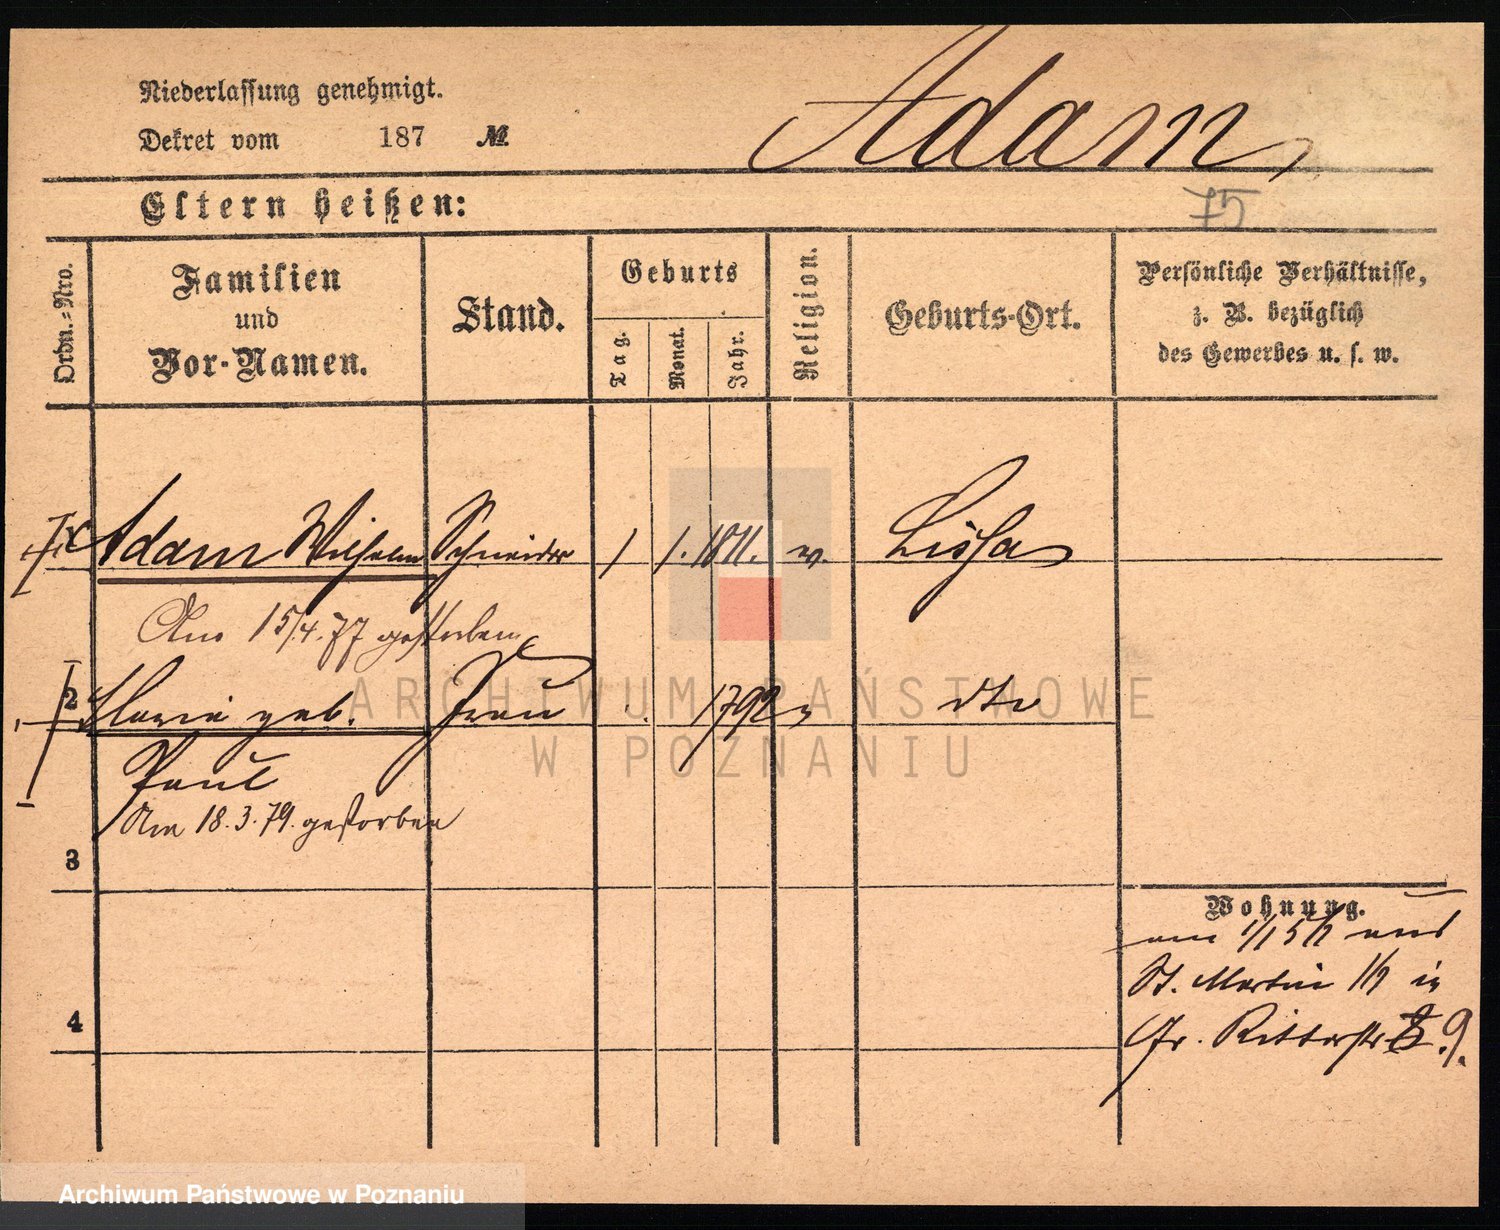 Niederlassung genehmigt.
Dekret vom 187 №
Adam
75
Eltern heißen:
Ordn.-Nro.
Familien
und
Vor-Namen.
Stand.
Geburts
Tag.
Monat.
Jahr.
Religion.
Geburts-Ort.
Persönliche Verhältnisse,
z. B. bezüglich
des Gewerbes u. s. w.
Adam Wilhelm Schneider 1 1. 1811. Lissa
Am 15/4.77 gestorben
2 Maria geb. Frau 1792 dto
Paul
Am 18.3.79. gestorben
3
Wohnung.
St. Martin in
4
Gr. Ritterstr 9.
ARCHIWUM PAŃSTWOWE
W POZNANIU
Archiwum Państwowe w Poznaniu